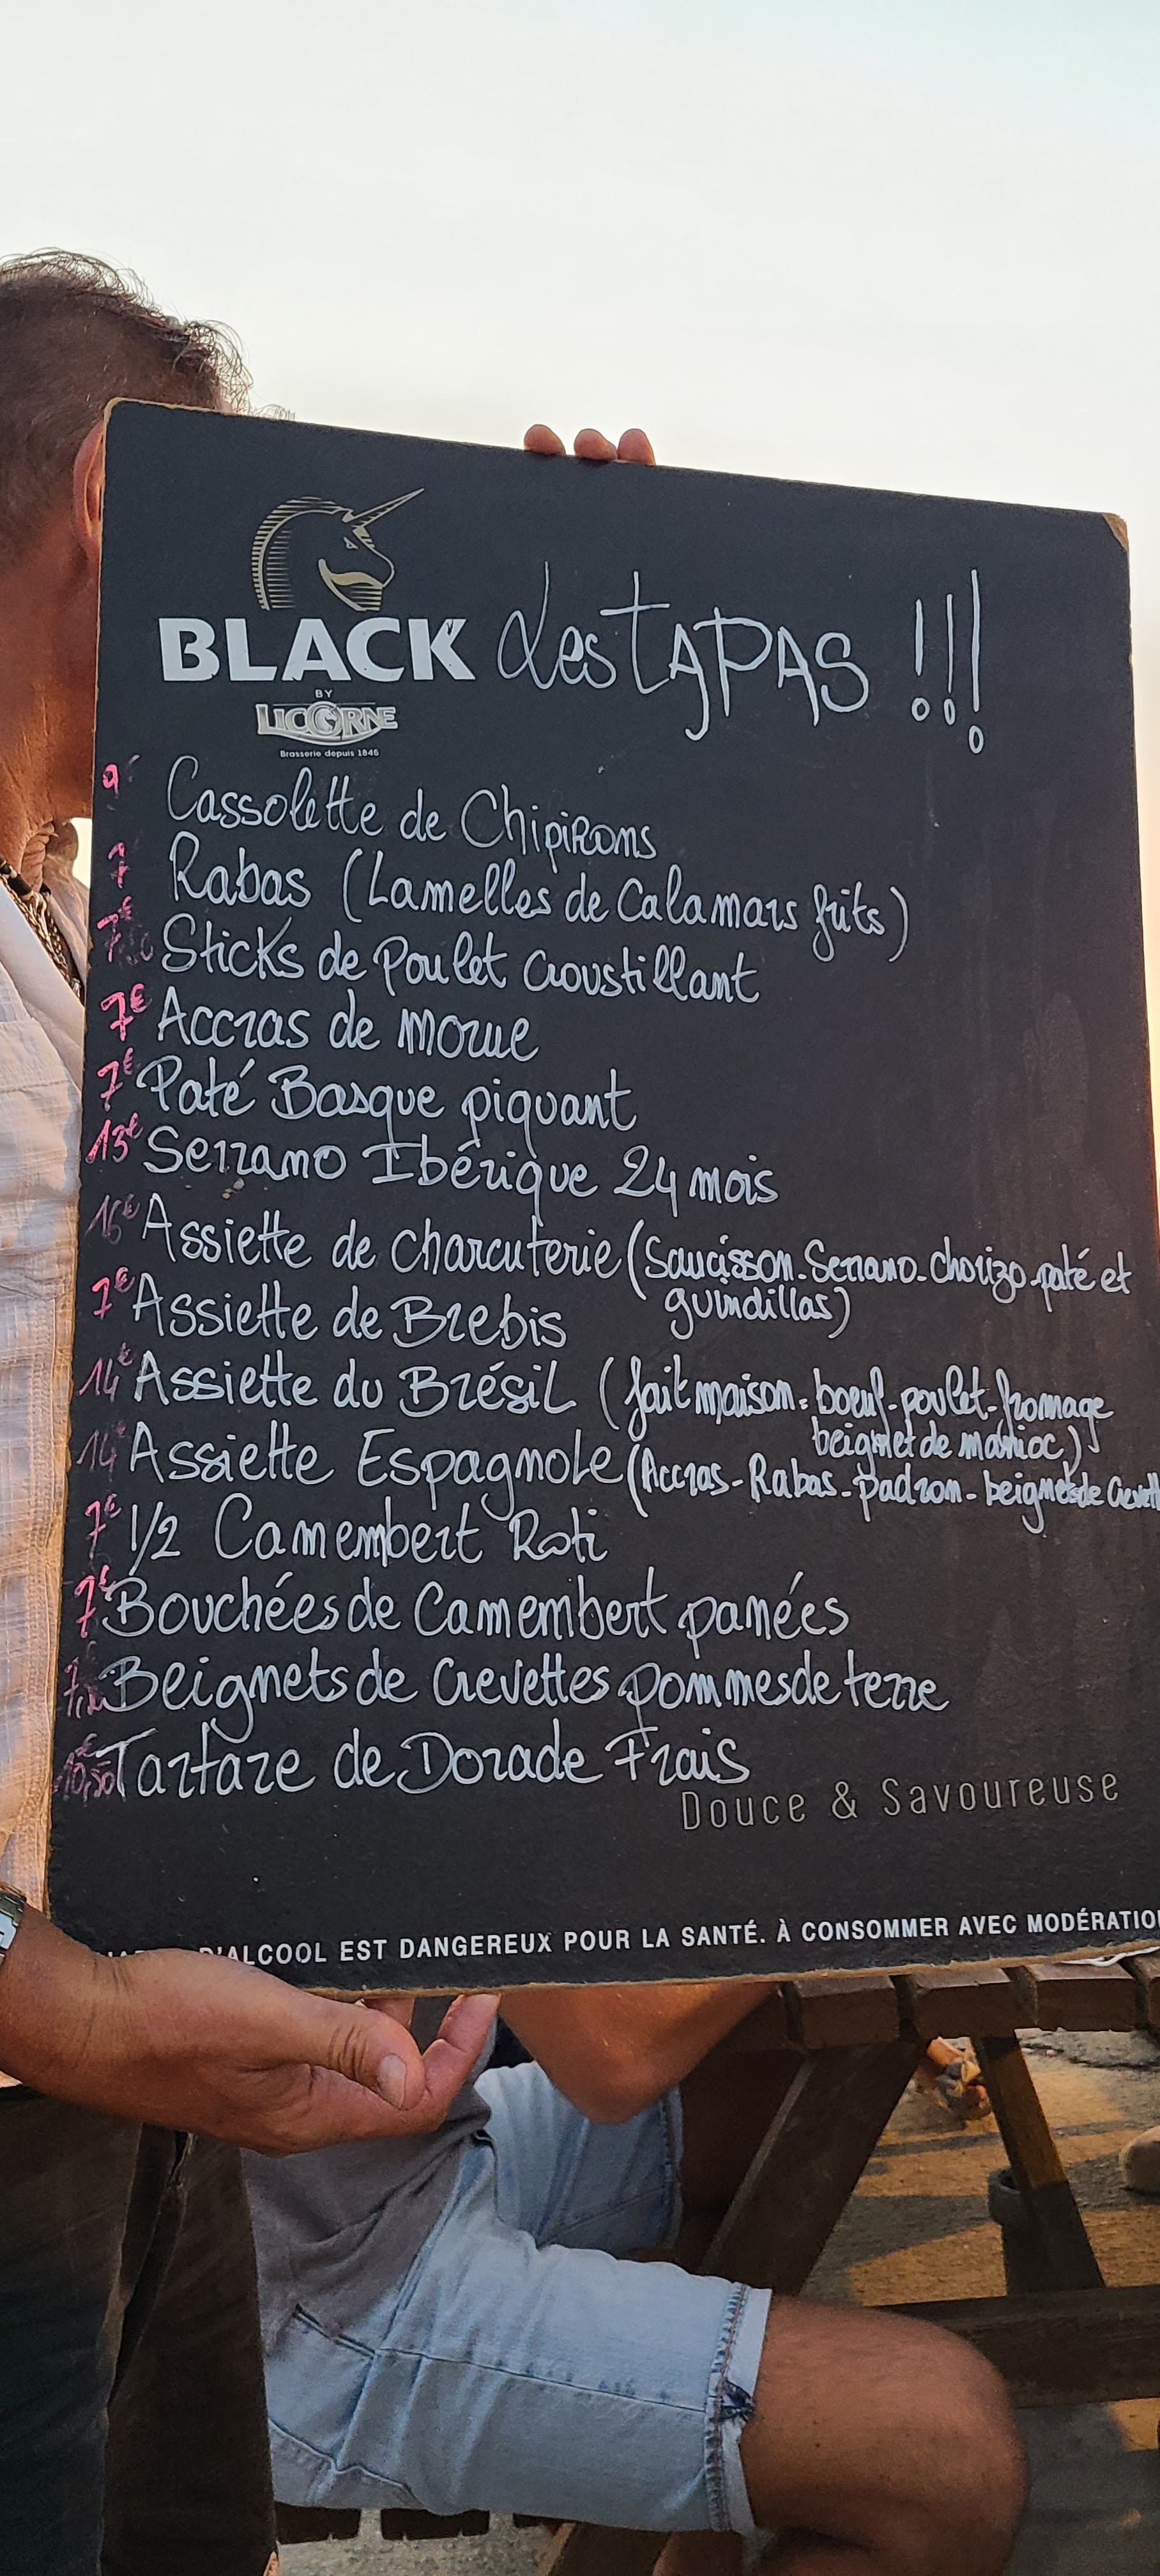 BLACK
BY
LICORNE
Brasserie depuis 1845
Les TAPAS !!!
9€ Cassolette de Chipirons
7 Rabas (Lamelles de Calamars frits)
7€ Sticks de Poulet Croustillant
7€ Accras de morue
7€ Paté Basque piquant
13€ Serrano Ibérique 24 mois
16€ Assiette de charcuterie (Saucisson - Serrano - chorizo - paté et
guindillas)
7€ Assiette de Brebis
14€ Assiette du Brésil (fait maison : boeuf - poulet - fromage
beignet de manioc)
14€ Assiette Espagnole (Accras - Rabas - padron - beignets de Crevett
7€ 1/2 Camembert Roti
7€ Bouchées de Camembert panées
Beignets de Crevettes pommes de terre
10,50€ Tartare de Dorade Frais
Douce & Savoureuse
D'ALCOOL EST DANGEREUX POUR LA SANTÉ. À CONSOMMER AVEC MODÉRATIO